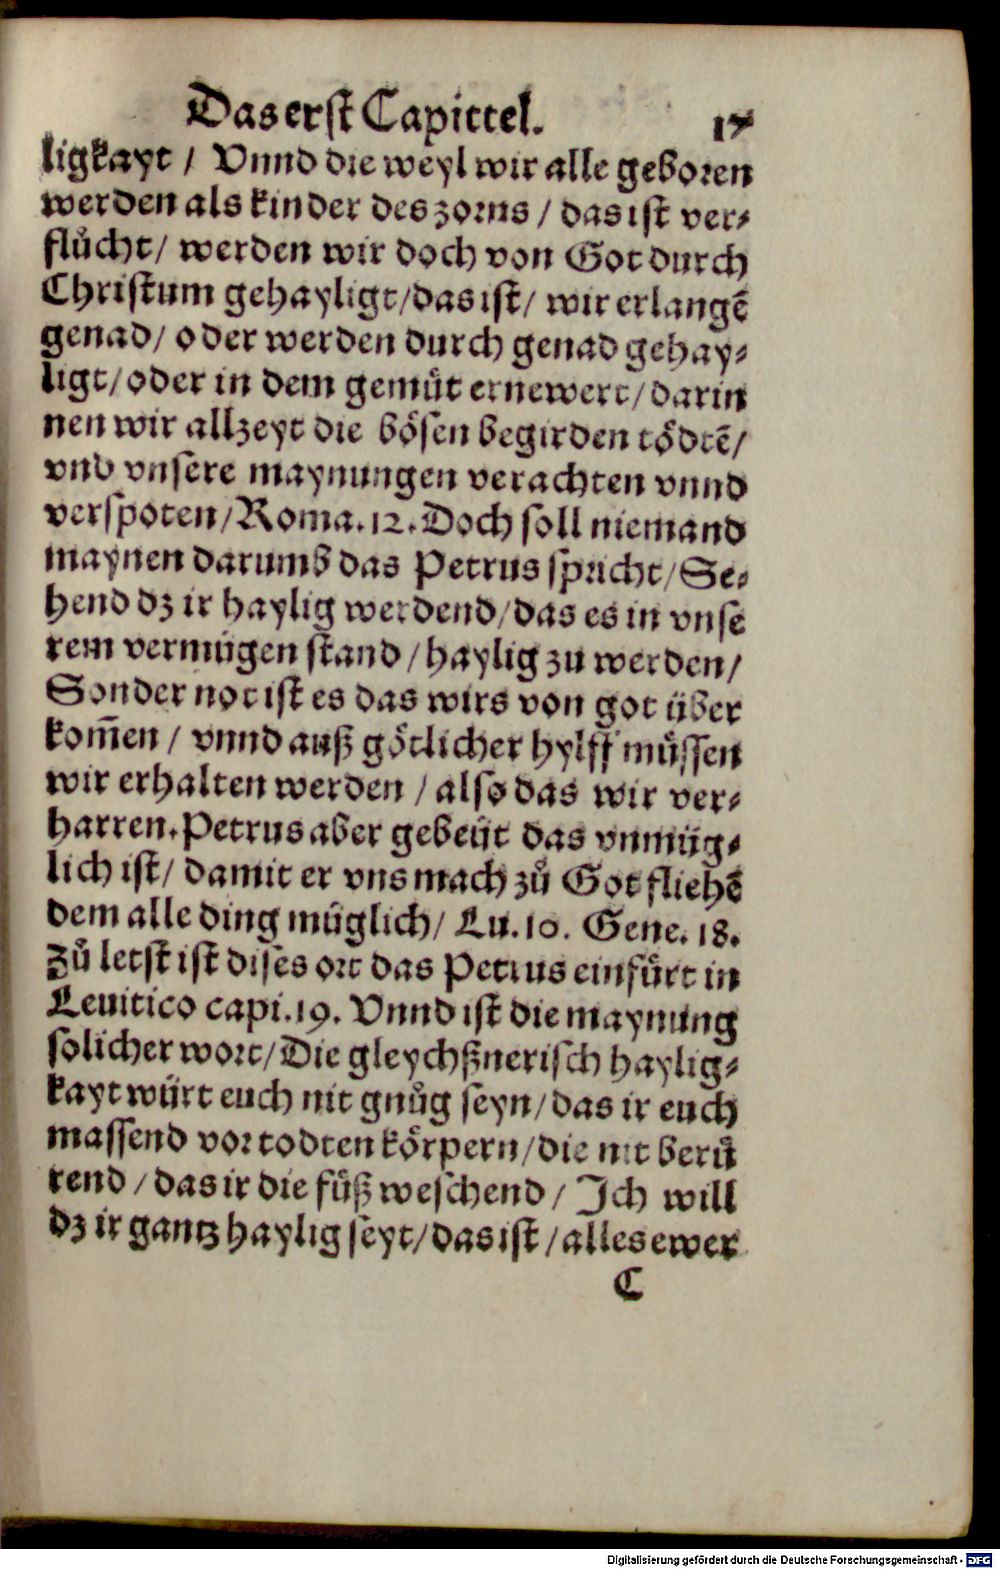 Das erst Capittel. 17
ligkayt / Vnnd die weyl wir alle geboren
werden als kinder des zorns / das ist ver⸗
flůcht / werden wir doch von Got durch
Christum gehayligt / das ist / wir erlangē
genad / oder werden durch genad gehay⸗
ligt / oder in dem gemüt ernewert / darin
nen wir allzeyt die bösen begirden tödtē /
vnd vnsere maynungen verachten vnnd
verspoten / Roma. 12. Doch soll niemand
maynen darumb das Petrus spricht / Se⸗
hend dz ir haylig werdend / das es in vnse
rem vermügen stand / haylig zu werden /
Sonder not ist es das wirs von got über
kom̄en / vnnd auß götlicher hylff müssen
wir erhalten werden / also das wir ver⸗
harren. Petrus aber gebeüt das vnmüg⸗
lich ist / damit er vns mach zů Got fliehē
dem alle ding müglich / Lu. 10. Gene. 18.
Zů letst ist dises ort das Petrus einfürt in
Leuitico capi. 19. Vnnd ist die maynung
solicher wort / Die gleychßnerisch haylig⸗
kayt würt euch nit gnůg seyn / das ir euch
massend vor todten körpern / die nit berů
rend / das ir die füß weschend / Ich will
dz ir gantz haylig seyt / das ist / alles ewer
C
Digitalisierung gefördert durch die Deutsche Forschungsgemeinschaft - DFG